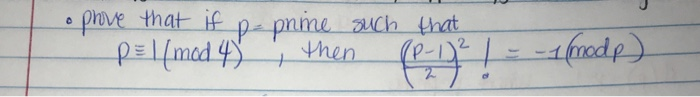 • prove that if p = prime such that
p ≡ 1 (mod 4) , then ((p-1)/2)² ! = -1 (mod p)